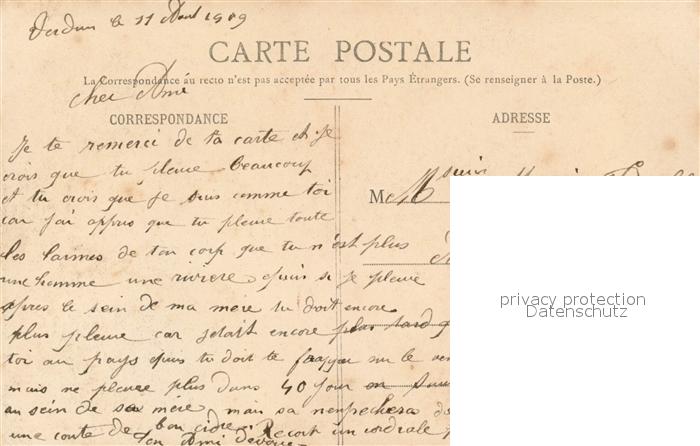 Verdun le 11 Aout 1909
CARTE POSTALE
La Correspondance au recto n'est pas acceptée par tous les Pays Étrangers. (Se renseigner à la Poste.)
cher Ami
CORRESPONDANCE
ADRESSE
Je te remerci de ta carte et je
crois que tu pleure beaucoup
et tu crois que je suis comme toi
car j'ai appris que tu pleure toute
les larmes de ton corp que tu n'est plus
une homme une riviere si je pleure
apres le sein de ma mère tu doit encore
plus pleure car jetait encore plus tard
toi au pays tu doit te sur le
mais ne pleure plus dans 40 jour
au sein de sa mère, mais sa
une coute de bon cidre. Recoit un cordiale
Ton Ami
M
privacy protection
Datenschutz